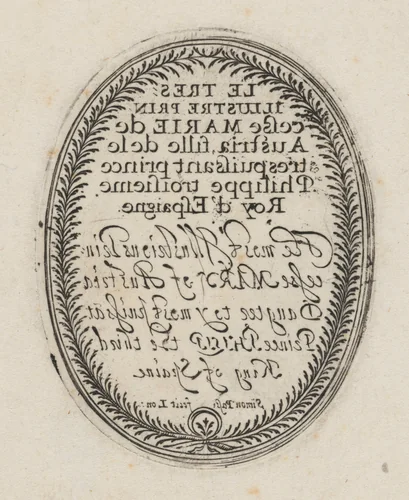 LE TRES
ILLUSTRE PRIN
cesse MARIE de
Austria, fille de le
trespuissant prince
Philippe troisieme
Roy d'Espaigne.
The most Illusterious Prin:
cesse MARY of Austria
Daugter to y most puissāt
Prince PHILIP the third
King of Spaine
Simon Passi fecit Lon: